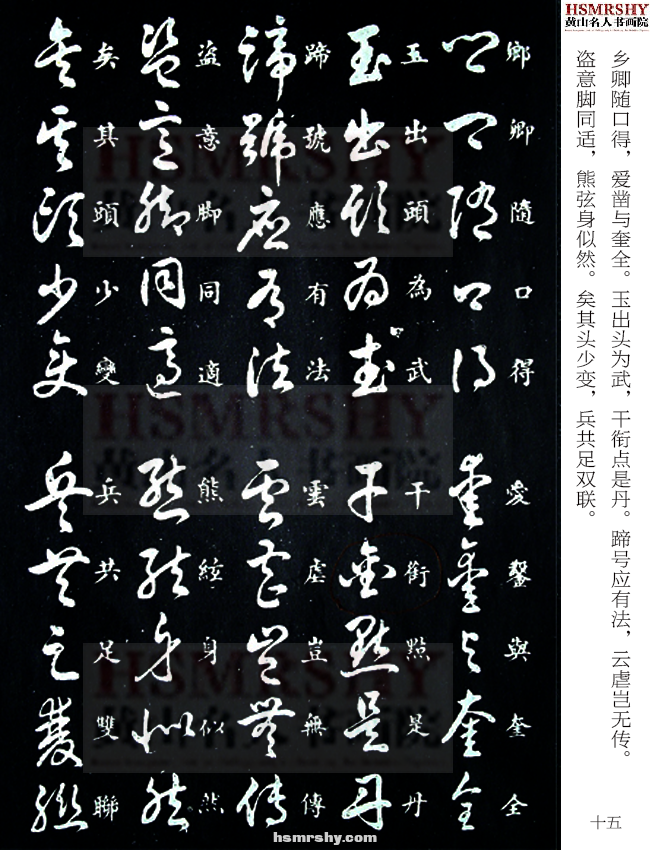 鄉卿隨口得愛鑿與奎全
玉出頭為武干銜點是丹
蹄號應有法雲虐豈無傳
盜意脚同適熊絃身似然
矣其頭少變兵共足雙聯
HSMRSHY
黄山名人书画院
乡卿随口得，爱凿与奎全。玉出头为武，干衔点是丹。蹄号应有法，云虐岂无传。
盗意脚同适，熊弦身似然。矣其头少变，兵共足双联。
十五
HSMRSHY
黄山名人书画院
HSMRSHY
黄山名人书画院
HSMRSHY
黄山名人书画院
hsmrshy.com